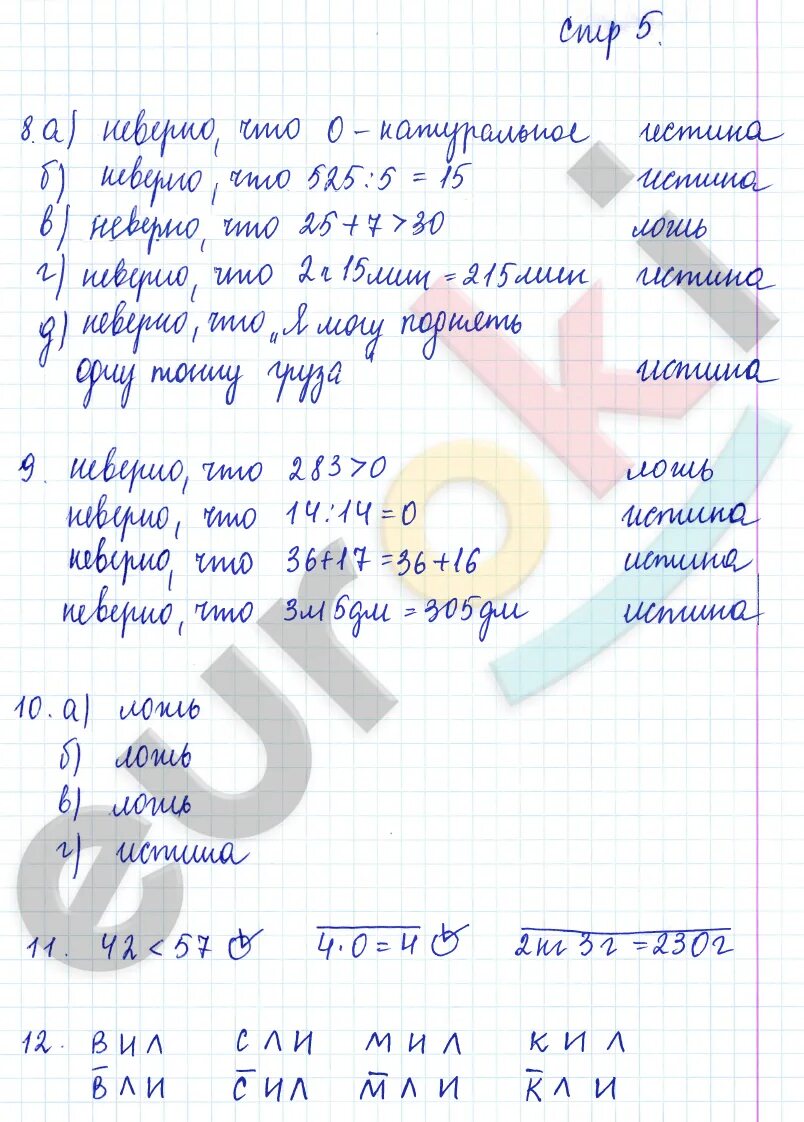 стр 5.
8. а) неверно, что 0 – натуральное истина
б) неверно, что 525 : 5 = 15 истина
в) неверно, что 25 + 7 > 30 ложь
г) неверно, что 2 ч 15 мин = 215 мин истина
д) неверно, что „Я могу поднять
одну тонну груза" истина
9. неверно, что 283 > 0 ложь
неверно, что 14 : 14 = 0 истина
неверно, что 36 + 17 = 36 + 16 истина
неверно, что 3м 5дм = 305дм истина
10. а) ложь
б) ложь
в) ложь
г) истина
11. 42 < 57 4 · 0 = 4 2кг 3г = 230г
12. В И Л С Л И М И Л К И Л
В̅ Л И С̅ И Л М̅ Л И К̅ Л И
euroki